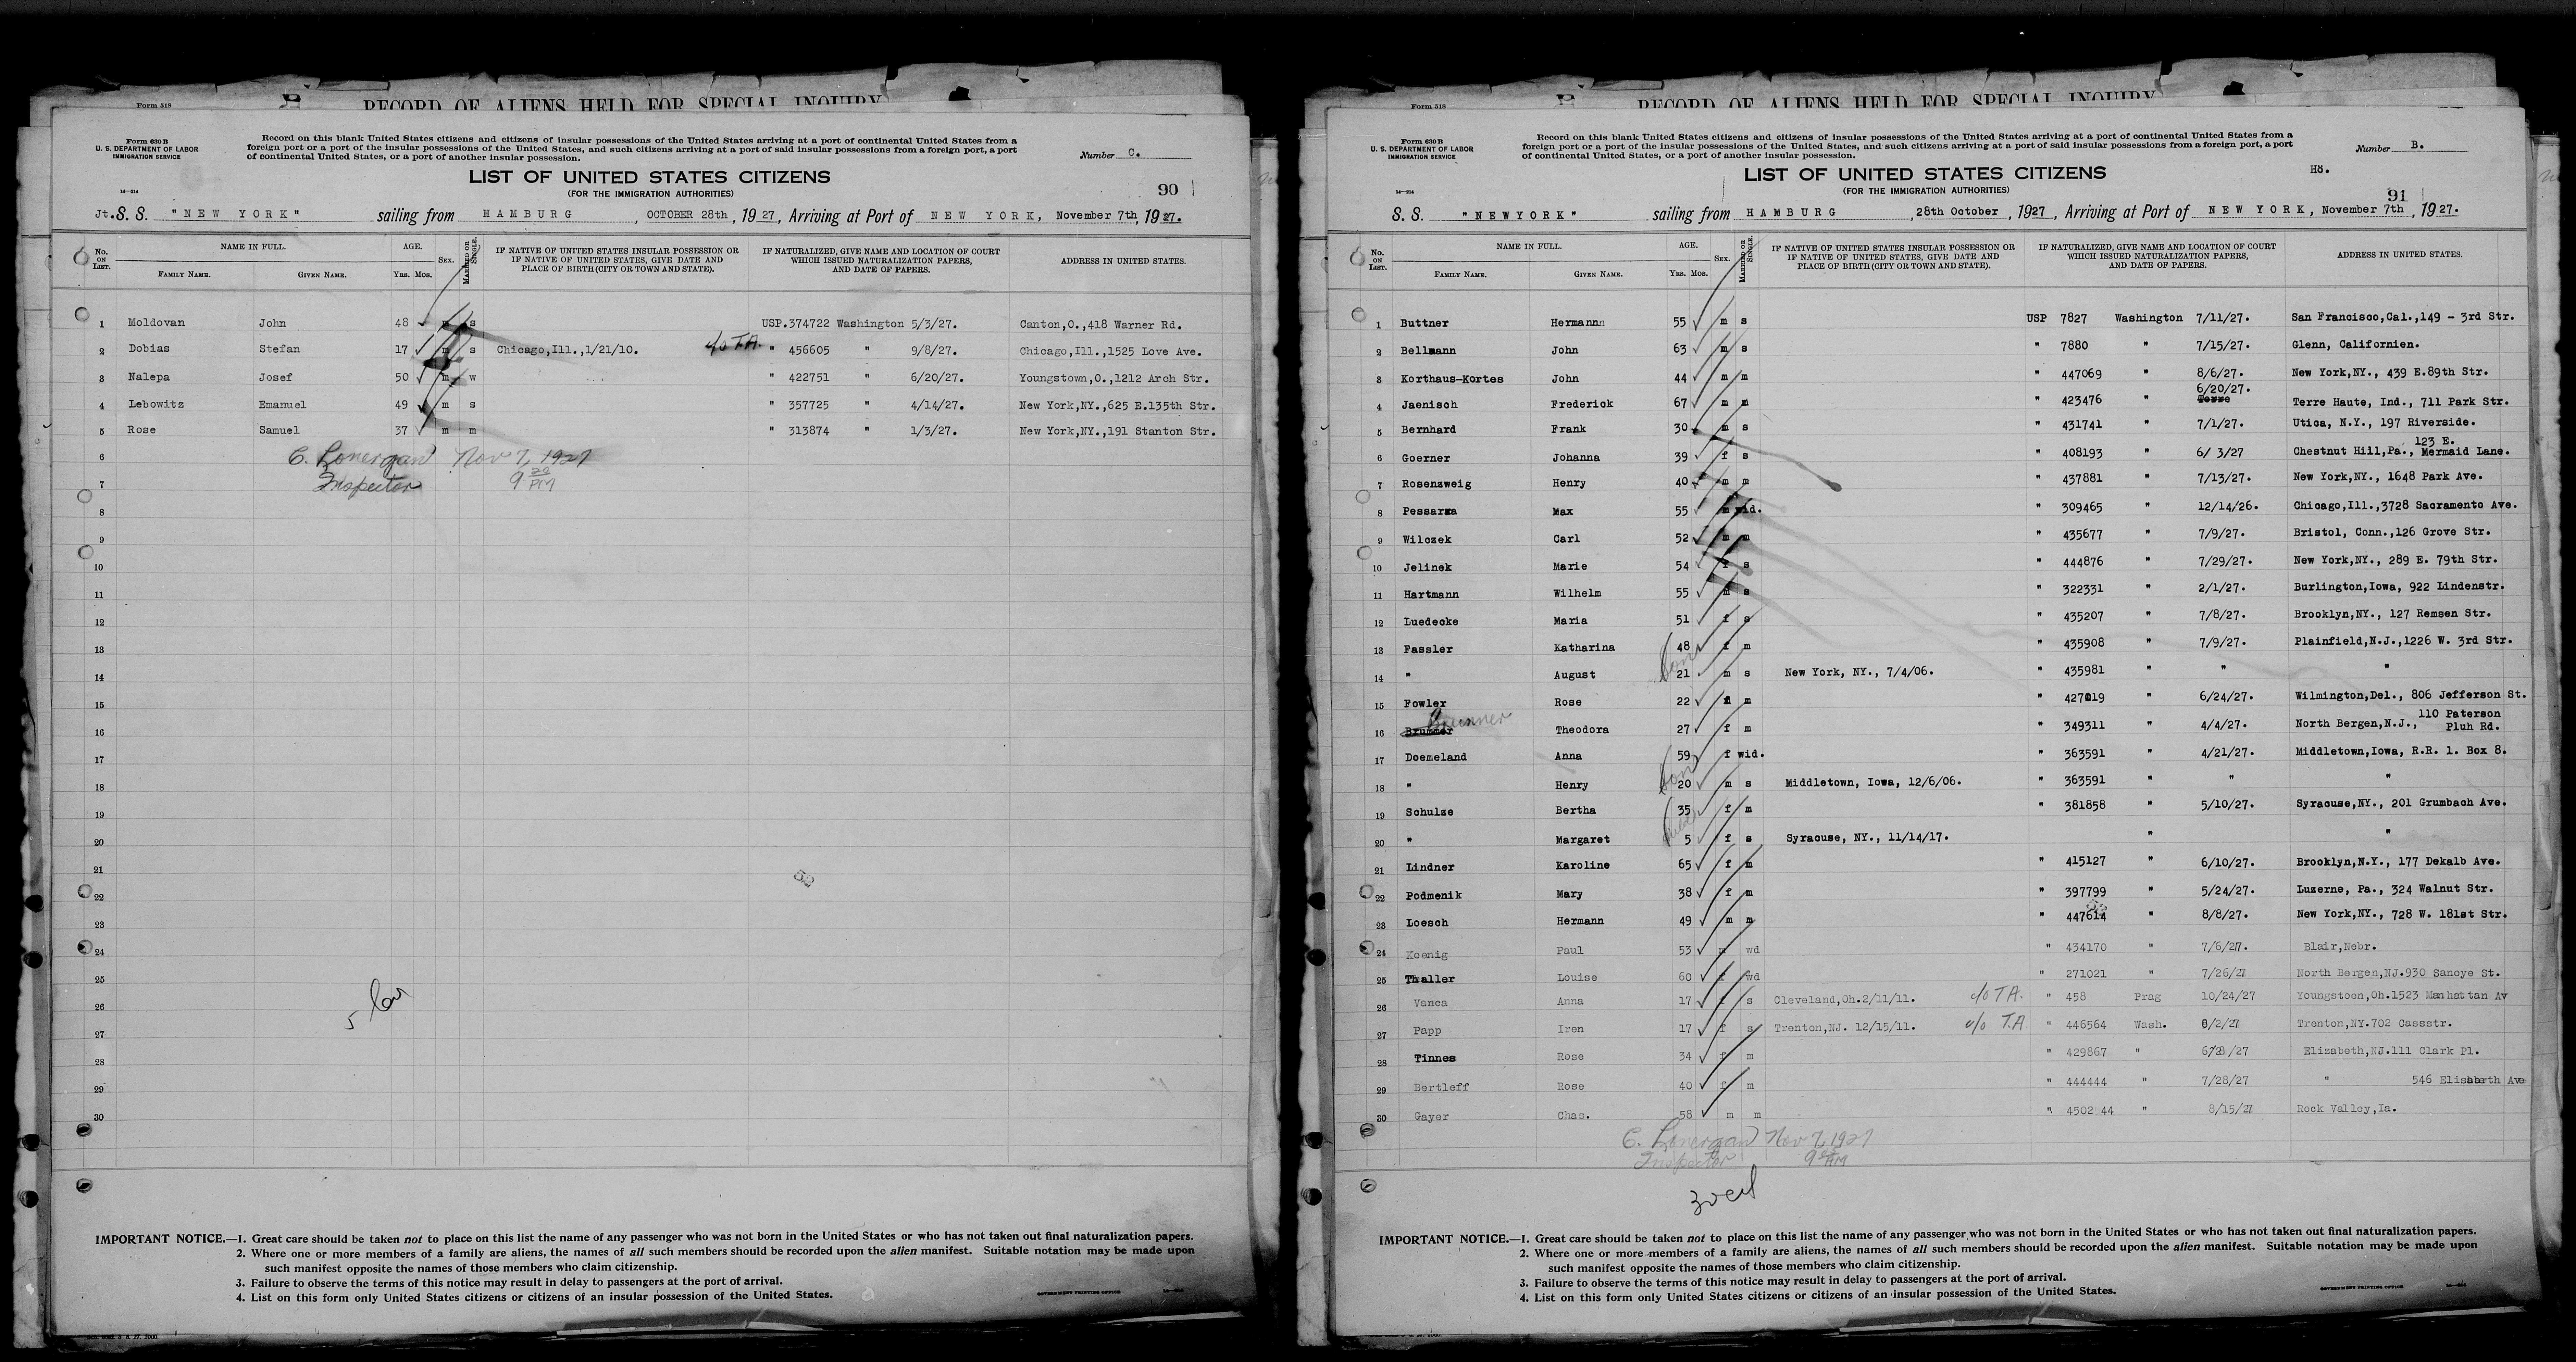 Form 518
RECORD OF ALIENS HELD FOR SPECIAL INQUIRY
Form 630 B
U. S. DEPARTMENT OF LABOR
IMMIGRATION SERVICE
Record on this blank United States citizens and citizens of insular possessions of the United States arriving at a port of continental United States from a
foreign port or a port of the insular possessions of the United States, and such citizens arriving at a port of said insular possessions from a foreign port, a port
of continental United States, or a port of another insular possession.
Number C.
LIST OF UNITED STATES CITIZENS
(FOR THE IMMIGRATION AUTHORITIES)
14—214
90
Jt. S. S. "NEW YORK" sailing from HAMBURG, OCTOBER 28th, 1927, Arriving at Port of NEW YORK, November 7th, 1927.
No. ON LIST. NAME IN FULL. FAMILY NAME. GIVEN NAME. AGE. Yrs. Mos. SEX. MARRIED OR SINGLE. IF NATIVE OF UNITED STATES INSULAR POSSESSION OR IF NATIVE OF UNITED STATES, GIVE DATE AND PLACE OF BIRTH (CITY OR TOWN AND STATE). IF NATURALIZED, GIVE NAME AND LOCATION OF COURT WHICH ISSUED NATURALIZATION PAPERS, AND DATE OF PAPERS. ADDRESS IN UNITED STATES.
1 Moldovan John 48 m s USP. 374722 Washington 5/3/27. Canton,O.,418 Warner Rd.
2 Dobias Stefan 17 m s Chicago,Ill.,1/21/10. c/o T.A. " 456605 " 9/8/27. Chicago,Ill.,1525 Love Ave.
3 Nalepa Josef 50 m w " 422751 " 6/20/27. Youngstown,O.,1212 Arch Str.
4 Lebowitz Emanuel 49 m s " 357725 " 4/14/27. New York,NY.,625 E.135th Str.
5 Rose Samuel 37 m m " 313874 " 1/3/27. New York,NY.,191 Stanton Str.
6 C. Lonergan Nov 7, 1927
7 Inspector 9 20 PM
8
9
10
11
12
13
14
15
16
17
18
19
20
21
22
23
24
25
26
27
28
29
30
IMPORTANT NOTICE.—1. Great care should be taken not to place on this list the name of any passenger who was not born in the United States or who has not taken out final naturalization papers.
2. Where one or more members of a family are aliens, the names of all such members should be recorded upon the alien manifest. Suitable notation may be made upon
such manifest opposite the names of those members who claim citizenship.
3. Failure to observe the terms of this notice may result in delay to passengers at the port of arrival.
4. List on this form only United States citizens or citizens of an insular possession of the United States.
GOVERNMENT PRINTING OFFICE
Form 518
RECORD OF ALIENS HELD FOR SPECIAL INQUIRY
Form 630 B
U. S. DEPARTMENT OF LABOR
IMMIGRATION SERVICE
Record on this blank United States citizens and citizens of insular possessions of the United States arriving at a port of continental United States from a
foreign port or a port of the insular possessions of the United States, and such citizens arriving at a port of said insular possessions from a foreign port, a port
of continental United States, or a port of another insular possession.
Number B.
H8.
LIST OF UNITED STATES CITIZENS
(FOR THE IMMIGRATION AUTHORITIES)
14—214
91
S. S. "NEWYORK" sailing from HAMBURG, 28th October, 1927, Arriving at Port of NEW YORK, November 7th, 1927.
No. ON LIST. NAME IN FULL. FAMILY NAME. GIVEN NAME. AGE. Yrs. Mos. SEX. MARRIED OR SINGLE. IF NATIVE OF UNITED STATES INSULAR POSSESSION OR IF NATIVE OF UNITED STATES, GIVE DATE AND PLACE OF BIRTH (CITY OR TOWN AND STATE). IF NATURALIZED, GIVE NAME AND LOCATION OF COURT WHICH ISSUED NATURALIZATION PAPERS, AND DATE OF PAPERS. ADDRESS IN UNITED STATES.
1 Buttner Hermann 55 m s USP 7827 Washington 7/11/27. San Francisco,Cal.,149 - 3rd Str.
2 Bellmann John 63 m s " 7880 " 7/15/27. Glenn, Californien.
3 Korthaus-Kortes John 44 m m " 447069 " 8/6/27. New York,NY., 439 E.89th Str.
4 Jaenisch Frederick 67 m m " 423476 " 6/20/27. Terre Terre Haute, Ind., 711 Park Str.
5 Bernhard Frank 30 m s " 431741 " 7/1/27. Utica, N.Y., 197 Riverside.
6 Goerner Johanna 39 f s " 408193 " 6/ 3/27 Chestnut Hill,Pa., 123 E. Mermaid Lane.
7 Rosenzweig Henry 40 m m " 437881 " 7/13/27. New York,NY., 1648 Park Ave.
8 Pessarra Max 55 m wid. " 309465 " 12/14/26. Chicago,Ill.,3728 Sacramento Ave.
9 Wilczek Carl 52 m m " 435677 " 7/9/27. Bristol, Conn.,126 Grove Str.
10 Jelinek Marie 54 f s " 444876 " 7/29/27. New York,NY., 289 E. 79th Str.
11 Hartmann Wilhelm 55 m s " 322331 " 2/1/27. Burlington,Iowa, 922 Lindenstr.
12 Luedecke Maria 51 f s " 435207 " 7/8/27. Brooklyn,NY., 127 Remsen Str.
13 Fassler Katharina 48 f m " 435908 " 7/9/27. Plainfield,N.J.,1226 W. 3rd Str.
14 " August son 21 m s New York, NY., 7/4/06. " 435981 " " "
15 Fowler Rose 22 f m " 427019 " 6/24/27. Wilmington,Del., 806 Jefferson St.
16 Brummer Brunner Theodora 27 f m " 349311 " 4/4/27. North Bergen,N.J., 110 Paterson Pluh Rd.
17 Doemeland Anna 59 f wid. " 363591 " 4/21/27. Middletown,Iowa, R.R. 1. Box 8.
18 " Henry son 20 m s Middletown, Iowa, 12/6/06. " 363591 " " "
19 Schulze Bertha 35 f m " 381858 " 5/10/27. Syracuse,NY., 201 Grumbach Ave.
20 " Margaret 5 f s Syracuse, NY., 11/14/17. " "
21 Lindner Karoline 65 f m " 415127 " 6/10/27. Brooklyn,N.Y., 177 Dekalb Ave.
22 Podmenik Mary 38 f m " 397799 " 5/24/27. Luzerne, Pa., 324 Walnut Str.
23 Loesch Hermann 49 m m " 447614 " 8/8/27. New York,NY., 728 W. 181st Str.
24 Koenig Paul 53 m wd " 434170 " 7/6/27. Blair,Nebr.
25 Thaller Louise 60 f wd " 271021 " 7/26/27 North Bergen,NJ.930 Sanoye St.
26 Vanca Anna 17 f s Cleveland,Oh.2/11/11. c/o T.A. " 458 Prag 10/24/27 Youngstoen,Oh.1523 Manhattan Av
27 Papp Iren 17 f s Trenton,NJ. 12/15/11. c/o T.A " 446564 Wash. 8/2/27 Trenton,NY.702 Cassstr.
28 Tinnes Rose 34 f m " 429867 " 6/28/27 Elizabeth,NJ.111 Clark Pl.
29 Bertleff Rose 40 f m " 444444 " 7/28/27 " 546 Elisabeth Ave
30 Gayer Chas. 58 m m " 4502 44 " 8/15/27 Rock Valley,Ia.
C. Lonergan Nov 7, 1927
Inspector 9 AM
IMPORTANT NOTICE.—1. Great care should be taken not to place on this list the name of any passenger who was not born in the United States or who has not taken out final naturalization papers.
2. Where one or more members of a family are aliens, the names of all such members should be recorded upon the alien manifest. Suitable notation may be made upon
such manifest opposite the names of those members who claim citizenship.
3. Failure to observe the terms of this notice may result in delay to passengers at the port of arrival.
4. List on this form only United States citizens or citizens of an insular possession of the United States.
GOVERNMENT PRINTING OFFICE